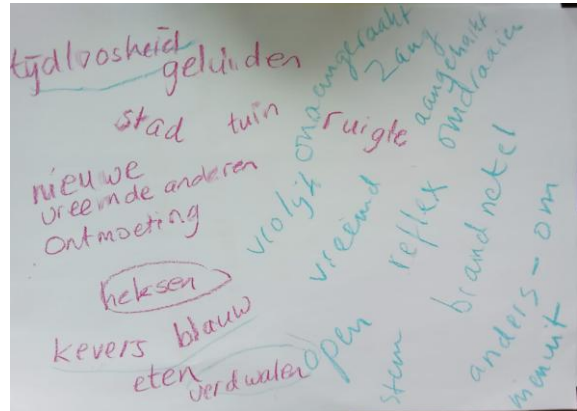 tijdloosheid
geluiden
stad tuin ruigte
nieuwe
vreemde anderen
ontmoeting
heksen
kevers blauw
eten
verdwalen
vrolijk onaangeraakt
open vreemd zang
reflex aangehaakt
stem brandnetel omdraaien
anders-om
menuit